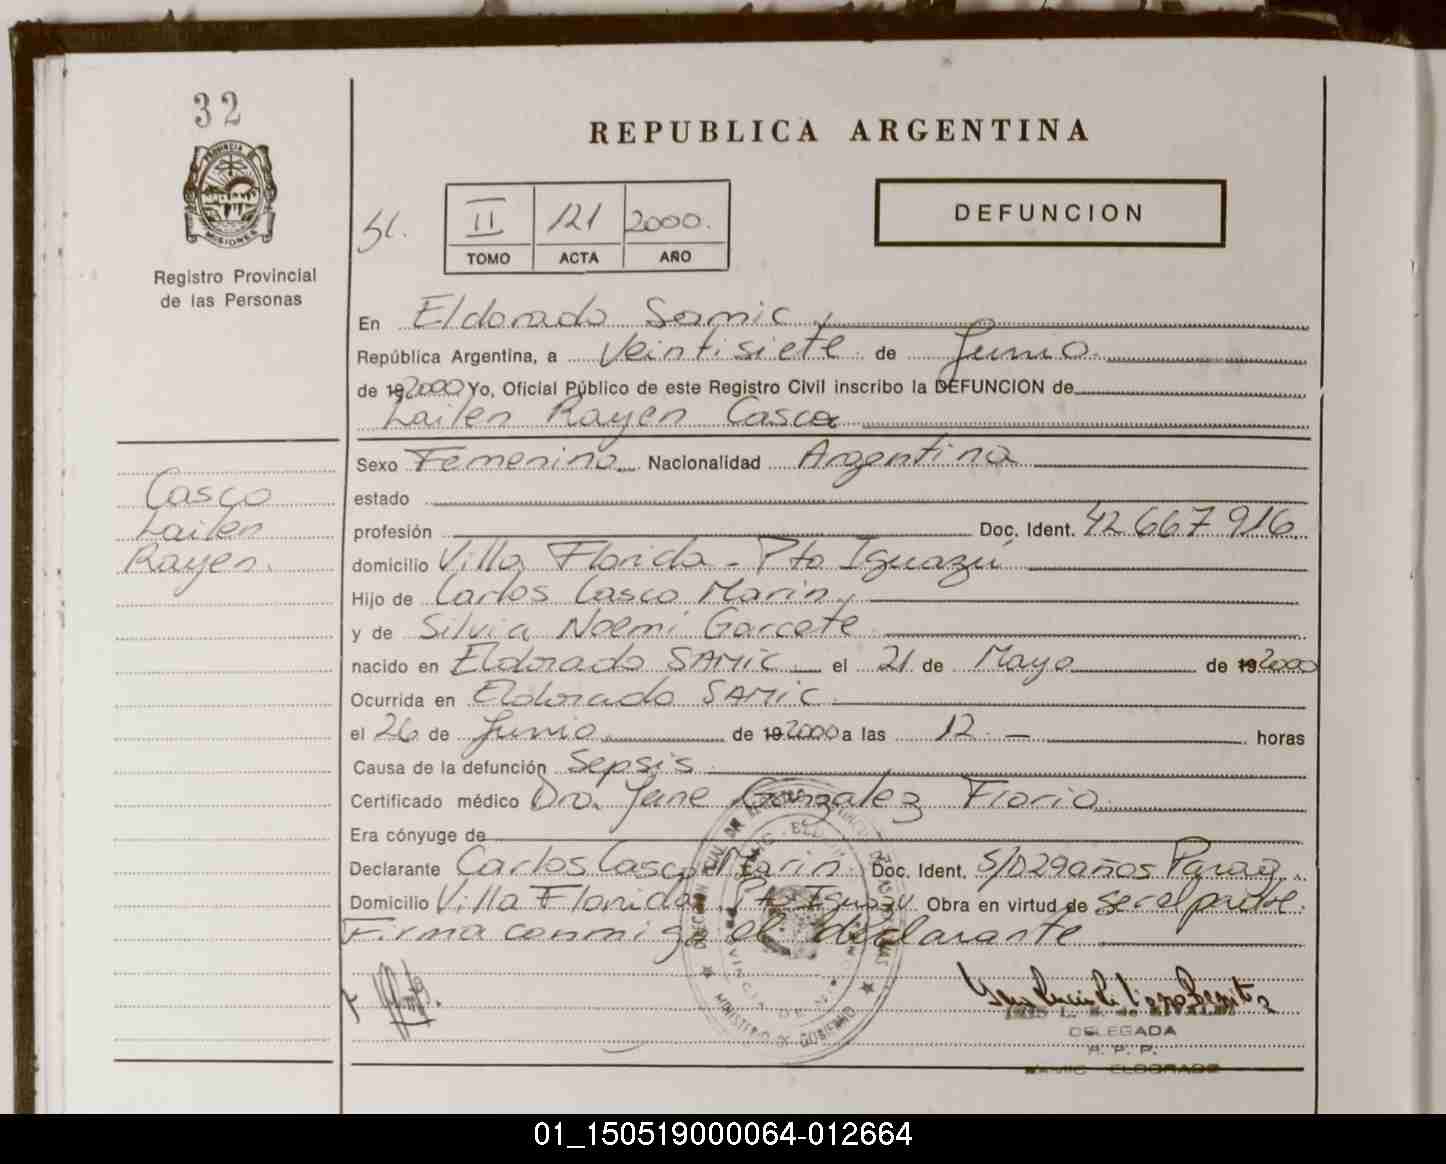 32
PROVINCIA DE
MISIONES
Registro Provincial
de las Personas
REPUBLICA ARGENTINA
DEFUNCION
II 121 2000.
TOMO ACTA AÑO
En Eldorado Samic
República Argentina, a Veintisiete de Junio
de 19 2000 Yo, Oficial Público de este Registro Civil inscribo la DEFUNCION de
Lailen Rayen Casco
Sexo Femenino Nacionalidad Argentina
Casco
Lailen
Rayen.
estado
profesión Doc. Ident. 42.667.916
domicilio Villa Florida - Pto Iguazú
Hijo de Carlos Casco Marin
y de Silvia Noemi Garcete
nacido en Eldorado SAMIC el 21 de Mayo de 19 2000
Ocurrida en Eldorado SAMIC
el 26 de Junio de 19 2000 a las 12 - horas
Causa de la defunción Sepsis
Certificado médico Dra. Jane Gonzalez Fiorio
Era cónyuge de
Declarante Carlos Casco Marin Doc. Ident. S/D 29 años Parag.
Domicilio Villa Florida Pto Iguazu Obra en virtud de ser el padre.
Firma conmigo el declarante
MINISTERIO DE GOBIERNO
DELEGADA
R. P. P.
SAMIC - ELDORADO
01_150519000064-012664